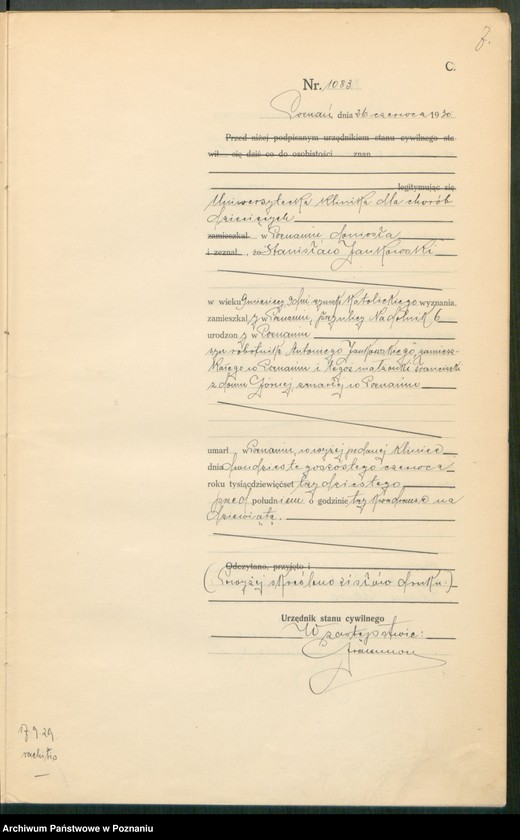 7.
C.
Nr. 1083
Poznań, dnia 26 czerwca 1930
Przed niżej podpisanym urzędnikiem stanu cywilnego sta
wił się dziś co do osobistości znan
legitymując się
Uniwersytecka klinika dla chorób
dziecięcych
zamieszkał w Poznaniu doniosła
i zeznał, że Stanisław Jankowski
w wieku 9 miesięcy 9 dni katolickiego wyznania,
zamieszkały w Poznaniu, przy ulicy Na dolnik 6
urodzony w Poznaniu
syn robotnika Antoniego Jankowskiego, zamiesz-
kałego w Poznaniu i tegoż małżonki
z domu Górnej, zmarłej w Poznaniu
umarł w Poznaniu, w wyżej podanej klinice
dnia dwudziestego szóstego czerwca
roku tysiącdziewięćset trzydziestego
przed południem o godzinie trzy kwadranse na
dziewiątą.
Odczytano, przyjęto i
(Powyżej skreślono zisłów druku.)
Urzędnik stanu cywilnego
W zastępstwie:
17.9.29
Archiwum Państwowe w Poznaniu